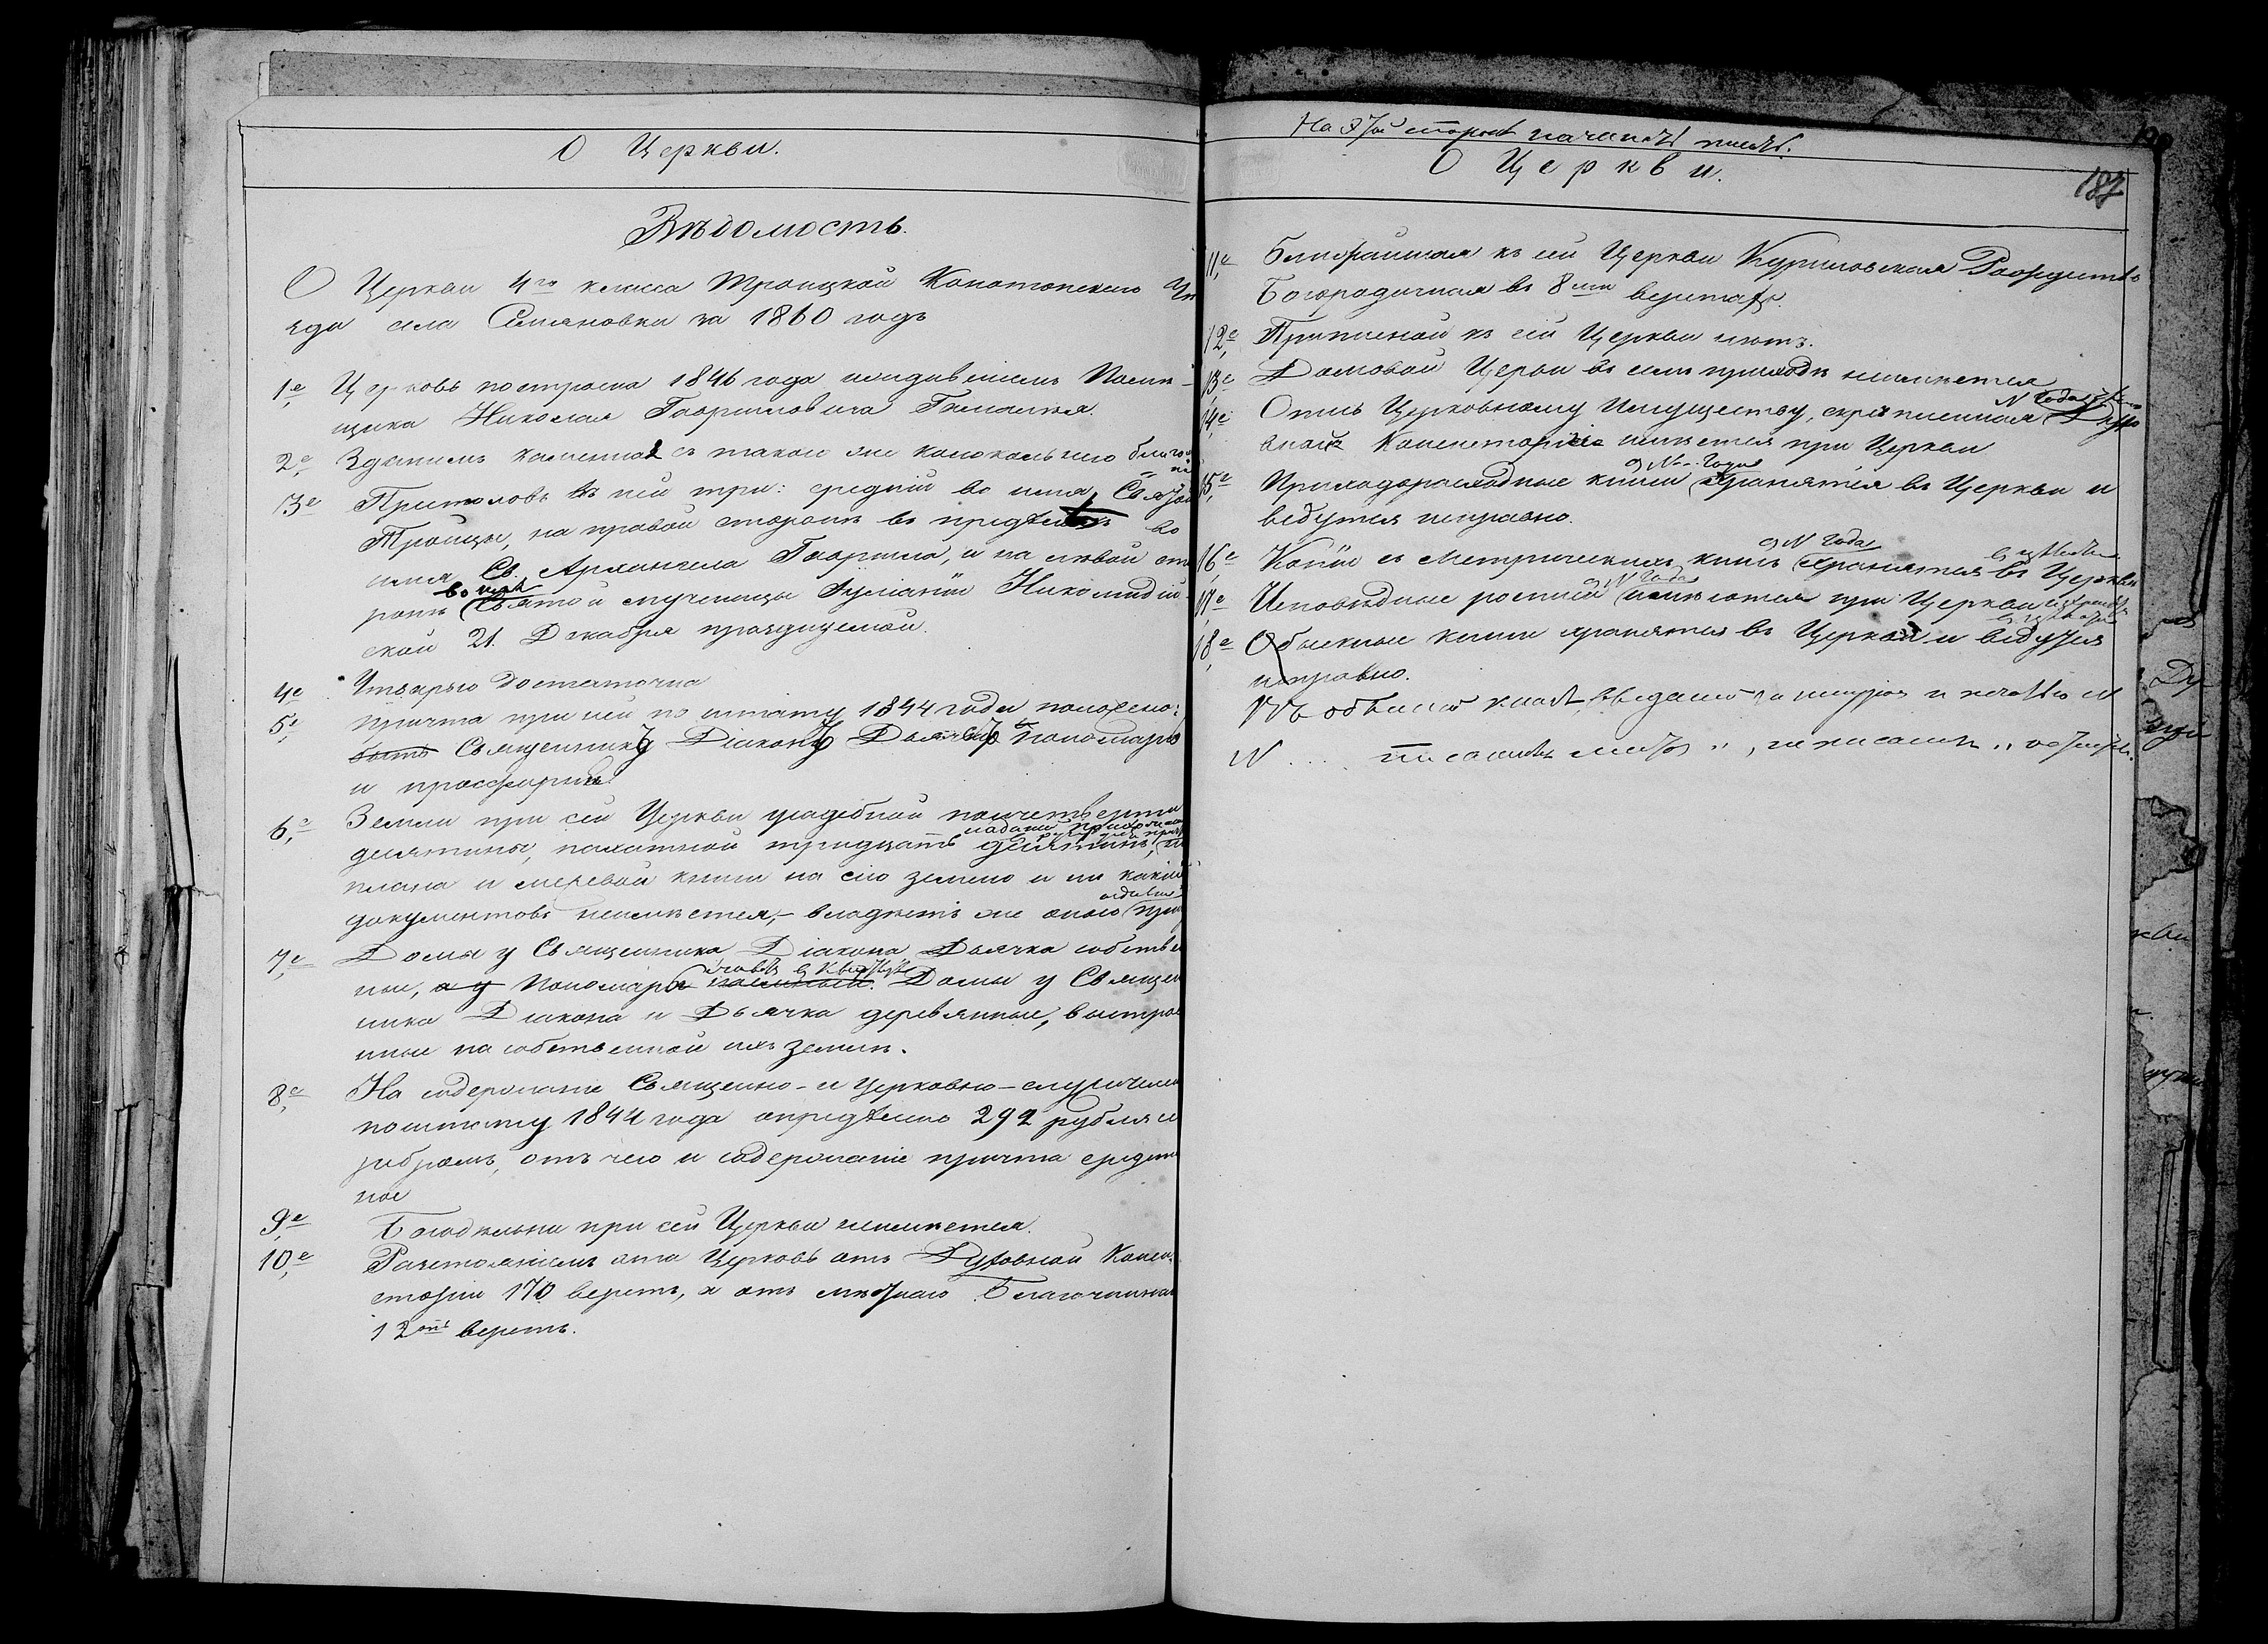 О Церкви.
Вѣдомость.
О Церкви 4го класса Троицкой Конотопскаго Уѣ
зда села Семяновки за 1860 годъ
1е Церковь построена 1846 года иждивеніемъ Помѣ-
щика Николая Гавриловича
2е Зданіемъ каменная съ такою же колокольнею
3е Престоловъ въ ней три: средній во имя Святой
Троицы, на правой сторонѣ въ предѣлѣ во
имя Св. Архангела Гавріила, и на лѣвой сто
во имя
ронѣ Святой мученицы Іуліаніи Никомидій
ской 21. Декабря празднуемой.
4е Утварью достаточна
5е Причта при ней по штату 1844 года положено:
быть Священнику Діакону Дьячку пономарю
и просфирнѣ
6е Земли при сей Церкви усадебной
десятины, пахатной тридцать десятинъ,
плана и межевой книги на сію землю и ни какихъ
документовъ неимѣется, - владѣетъ же оною
7е Домы у Священника, Діакона Дьячка собствен
ные, а у Пономаря Домы у Священ
ника Діакона и Дьячка деревянные, выстрое
нные на собственной ихъ землѣ.
8е На содержаніе Священно-и церковно-служителей
по штату 1844 года опредѣлено 292 рубля се
ребромъ, отъ чего и содержаніе причта средствен
ное
9е Богодѣльни при сей Церкви неимѣется.
10е Разстояніемъ эта Церковь отъ Духовной Консис
торіи 170 верстъ, а отъ мѣстнаго Благочиннаго
12 верстъ.
На этой сторонѣ начинать писать.
О Церкви.
187
11е Ближайшая къ сей Церкви Куриловская Рождество
Богородичная въ 8ми верстахъ.
12е Приписной къ сей Церкви нѣтъ.
13е Домовой Церкви въ семъ приходѣ неимѣется
N Года
14е Опись Церковному имуществу, скрѣпленная Духо
Консисторіи имѣется при Церкви
съ N... Года
15е Приходорасходные книги хранятся въ Церкви и
ведутся исправно.
съ N Года
16е Копіи съ метрическихъ книгъ хранятся въ Церкви
съ N Года
17е Исповѣдные росписи имѣются при Церкви
18е Обыскные книги хранятся въ Церкви и ведутся
исправно.